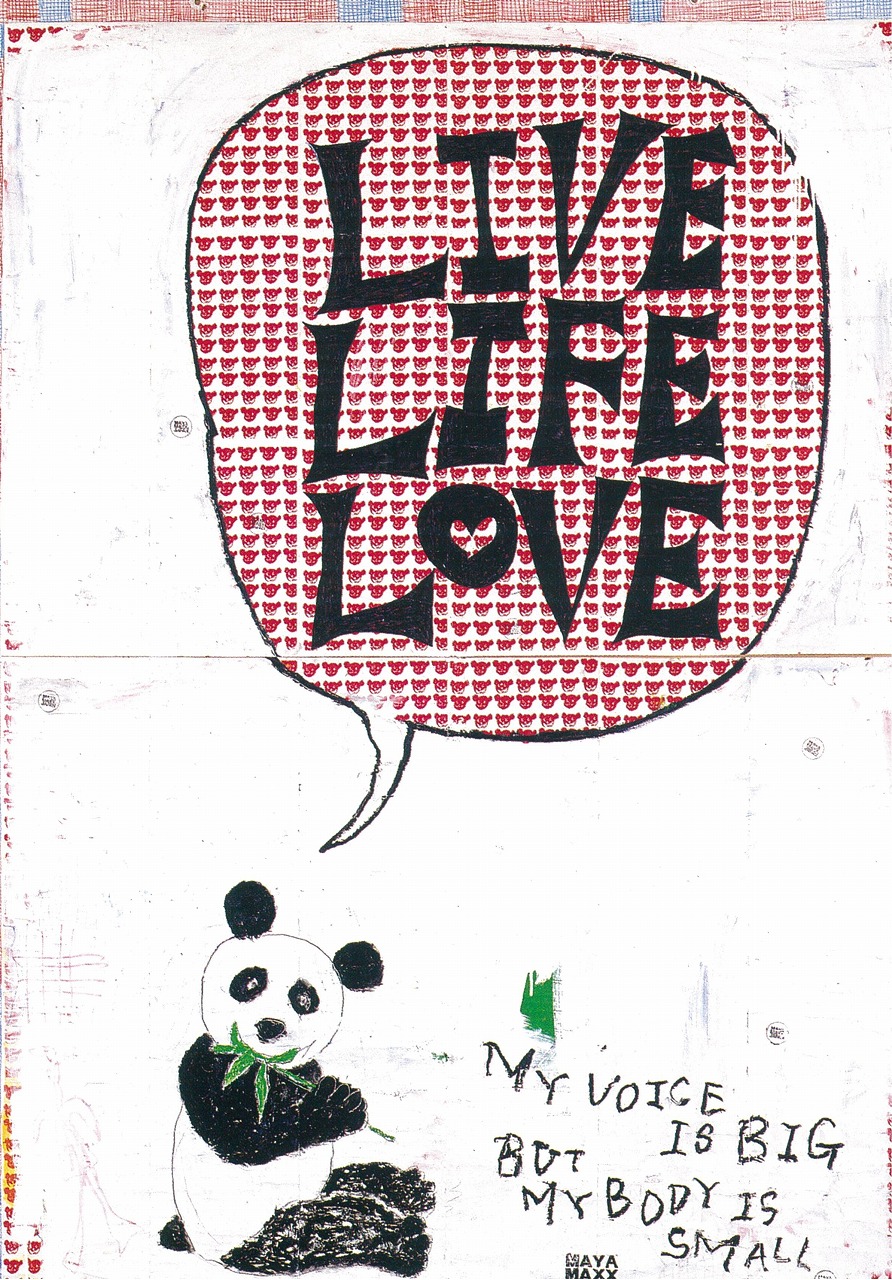 LIVE
LIFE
LOVE
MY VOICE
IS BIG
BUT
MY BODY IS
SMALL
MAYA
MAXX